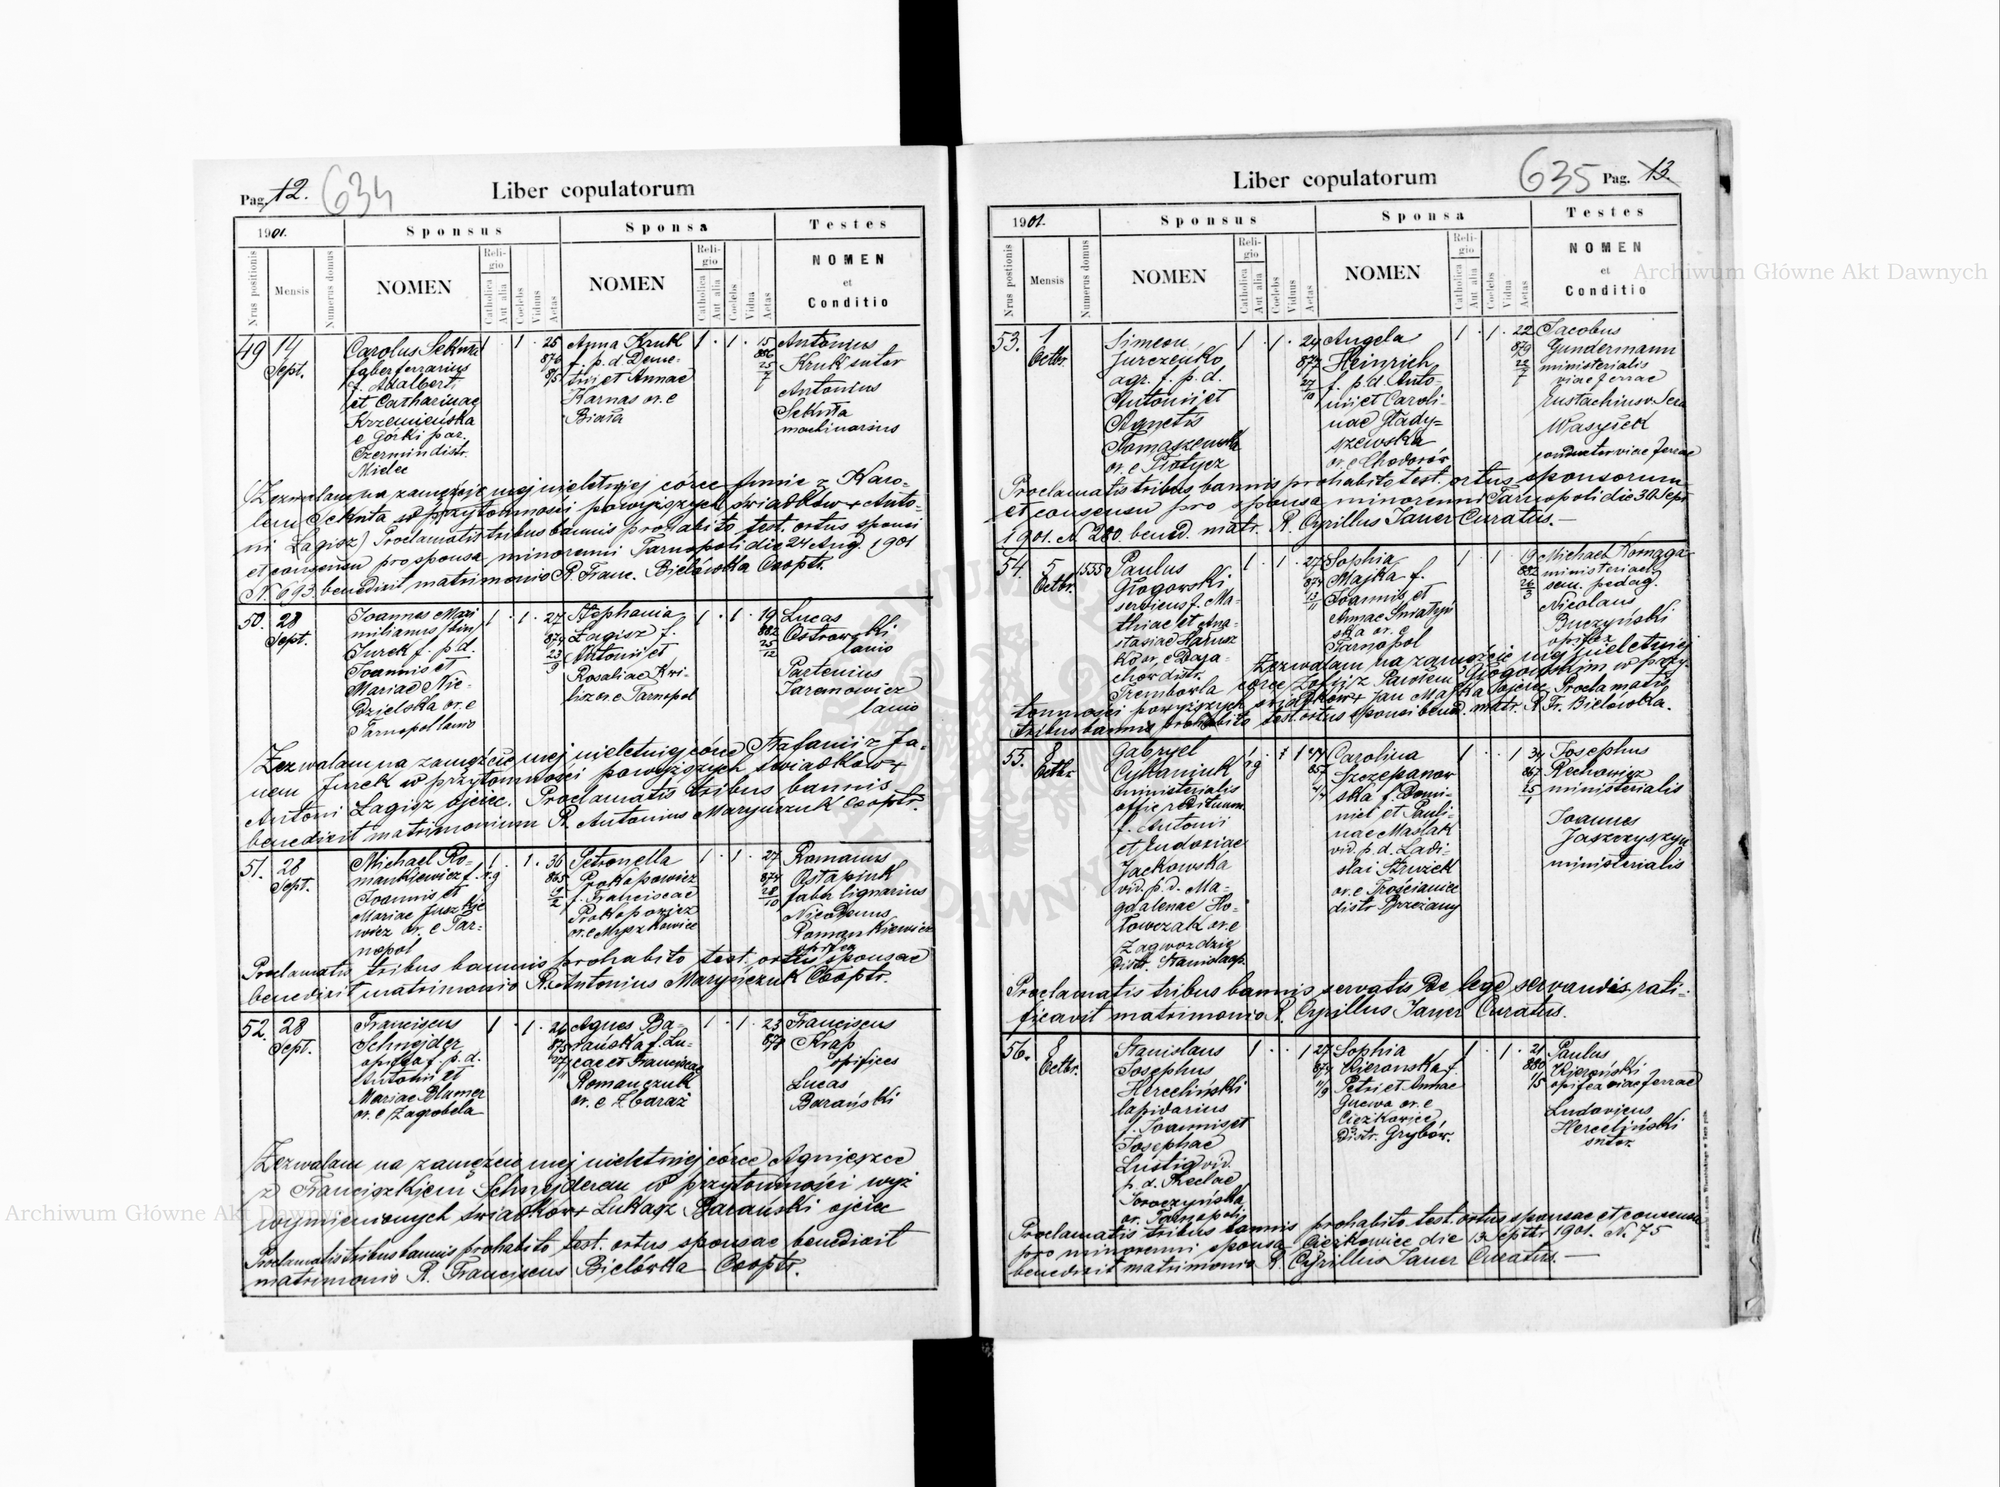 Pag. 12. 634 Liber copulatorum
1901. Sponsus Sponsa Testes
Nrus positionis Mensis Numerus domus NOMEN Religio Catholica Aut alia Coelebs Viduus Aetas NOMEN Religio Catholica Aut alia Coelebs Vidua Aetas NOMEN et Conditio
49 14 Sept.
Carolus Sekuta
faber ferrarius
f. Adalberti
et Catharinae
Krzemieńska
e Górki par.
Czermin distr.
Mielec
1 1 25
876
Anna Kruk
f. p. d. Deme-
trii et Annae
Karnas or. e
Biała
1 1 15
886
25
7
Antonius
Kruk sutor
Antonius
Sekuta
machinarius
Zezwalam na zamęźcie mej nieletniej córce Annie z Karo-
lem Sekuta w przytomności powyższych świadków + Anto-
ni Łagisz) Proclamatis tribus bannis prohabito test. ortus sponsi
et consensu pro sponsa minorenni Tarnopoli die 24 Aug. 1901
N. 693. benedixit matrimonio R. Franc. Bielówka Cooptr.
50. 28 Sept.
Joannes Maxi
milianus (bin)
Jurek f. p. d.
Joannis et
Mariae Nie-
dzielska or. e
Tarnopol lanio
1 1 27
874
23
9
Stephania
Łagisz f.
Antonii et
Rosaliae Kri-
or. e Tarnopol
1 1 19
882
25
12
Lucas
Ostrowski
lanio
Partenius
Jaremowicz
lanio
Zezwalam na zamęźcie mej nieletniej córce Stefanii z Ja-
nem Jurek w przytomności powyższych świadków +
Antoni Łagisz ojciec. Proclamatis tribus bannis
benedixit matrimonium R. Antonius Maryńczuk Cooptr.
51. 28 Sept.
Michael Ro-
mankiewicz f.
Joannis et
Mariae Juszkie
wicz or. e Tar-
nopol
1 r.g 1 36
865
Petronella
Prokopowicz
f. Franciscae
Prokopowicz
or. e Myszkowice
1 1 27
874
28
10
Romanus
Ostapiuk
faber lignarius
Nicodemus
Romankiewicz
opifex
Proclamatis tribus bannis prohabito test. ortus sponsae
benedixit matrimonio R. Antonius Maryńczuk Cooptr.
52. 28 Sept.
Franciscus
Schnejder
opifex f. p. d.
Antonii et
Mariae Blumer
or. e Zagrobela
1 1 26
875
Agnes Ba-
rańska f. Lu-
cae et Franciscae
Romanczuk
or. e Zbaraż
1 1 23
878
Franciscus
Skrap
opifices
Lucas
Barański
Zezwalam na zamęźcie mej nieletniej córce Agnieszce
z Franciszkiem Schnejderem w przytomności wyż
wymienionych świadków + Lukasz Barański ojciec
Proclamatis tribus bannis prohabito test. ortus sponsae benedixit
matrimonio R. Franciscus Bielówka Cooptr.
Liber copulatorum 635 Pag. 13.
1901. Sponsus Sponsa Testes
Nrus positionis Mensis Numerus domus NOMEN Religio Catholica Aut alia Coelebs Viduus Aetas NOMEN Religio Catholica Aut alia Coelebs Vidua Aetas NOMEN et Conditio
53. 1 Octbr.
Simeon
Jurczenko
agr. f. p. d.
Antonii et
Agnetis
Tomaszewska
or. e Płotycz
1 1 24
877
27
10
Angela
Heinrich
f. p. d. Anto-
nii et Caroli-
nae Włady-
szewska
or. e Chodorów
1 1 22
879
22
7
Jacobus
Gundermann
ministerialis
viae ferrae
Eustachius
Wasylek
conductor viae ferrae
Proclamatis tribus bannis prohabito test. ortus sponsorum
et consensu pro sponsa minorenni Tarnopoli die 30 Sept.
1901. N. 280. bened. matr. R. Cyrillus Janer Curatus.—
54. 5 Octbr. 1555
Paulus
Głogowski
servicus f. Ma-
thiae et Ana-
stasiae Harusz
ko or. e
distr.
Trembowla
1 1 27
874
13
11
Sophia
Majka f.
Joannis et
Annae Śniatyń
ska or. e
Tarnopol
1 1 19
882
26
3
Michael
ministeriali
sem. pedag.
Nicolaus
Buczyński
opifex
Zezwalam na zamęźcie mej nieletniej
córce Zofij z Pawłem Głogowskim w przy-
tomności powyższych świadków + Jan Majka ojciec. Proclamatis
tribus bannis prohabito test. ortus sponsi bened. matr. R. Fr. Bielówka.
55. 8 Octbr.
Gabryel
Cukaniuk
ministerialis
offic.
f. Antonii
et Eudoxiae
Jackowska
vid. p. d. Ma-
gdalenae Ho-
łowczak or. e
Zagwozdzie
distr. Stanislaop.
1 r.g 1 44
857
Carolina
Szczepanow
ska f. Domi-
nici et Pauli-
nae Maślak
vid. p. d. Ladi-
slai Struzek
or. e Trościaniec
distr Brzeżany
1 1 34
867
25
1
Josephus
Rechowicz
ministerialis
Joannes
Jaszczyszyn
ministerialis
Proclamatis tribus bannis servatis de lege servandis rati-
ficavit matrimonio R. Cyrillus Janer Curatus.
56. 8 Octbr.
Stanislaus
Josephus
Herceliński
lapidarius
f. Joannis et
Josephae
Lustig vid.
p. d. Theclae
Soroczyńska
or. Tarnopolis
1 1 27
874
Sophia
Kieronska f.
Petri et Annae
Gucwa or. e
Ciężkowice
distr. Grybów.
1 1 21
880
Paulus
Kieroński
opifex viae ferrae
Ludovicus
Herceliński
sutor
Proclamatis tribus bannis prohabito test. ortus sponsae et consensu
pro minorenni sponsa Ciężkowice die 13 Septbr 1901. N. 75
benedixit matrimonio R. Cyrillus Janer Curatus.—
Archiwum Główne Akt Dawnych
Archiwum Główne Akt Dawnych